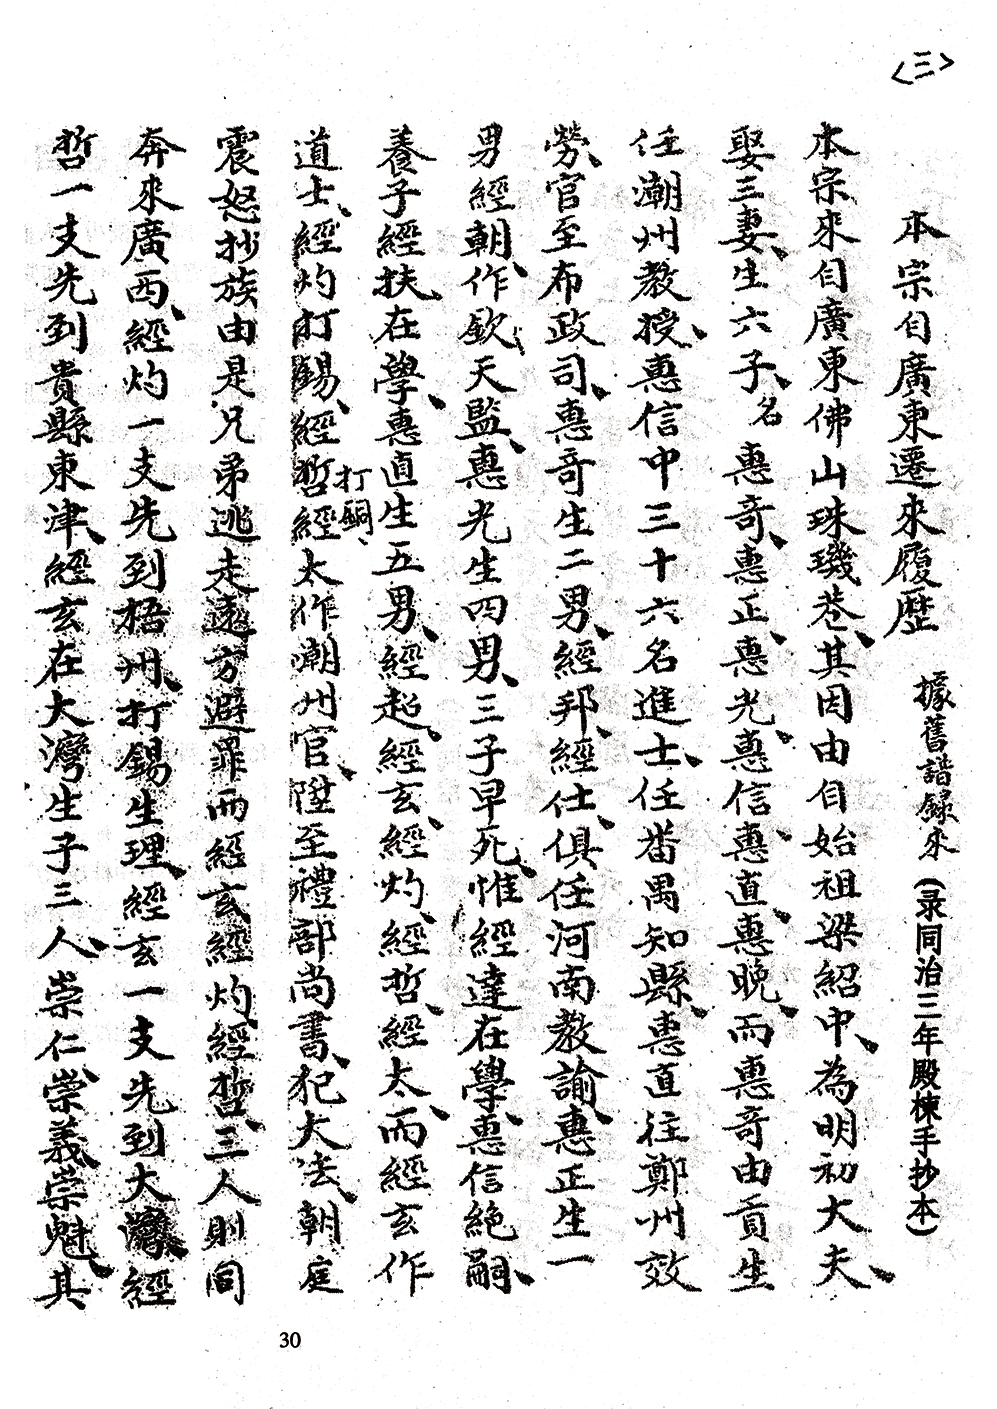 〈三〉
本宗自廣東遷來履歷 據舊譜錄來(录同治三年殿棟手抄本)
本宗來自廣東佛山珠璣巷、其因由自始祖梁紹中、為明初大夫、
娶三妻、生六子、名惠奇、惠正、惠光、惠信、惠直、惠晚、而惠奇由貢生
任潮州教授、惠信中三十六名進士、任番禺知縣、惠直往鄭州效
勞、官至布政司、惠奇生二男、經邦、經仕、俱任河南教諭、惠正生一
男經朝、作欽天監、惠光生四男、三子早死、惟經達在學、惠信絕嗣、
養子經扶在學、惠直生五男、經起、經玄、經灼、經哲、經太、而經玄作
道士、經灼打錫、經哲打銅、經太作潮州官、陞至禮部尚書、犯大法、朝庭
震怒抄族由是兄弟逃走遠方避罪而經玄經灼、經哲、三人則同
奔來廣西、經灼一支先到梧州、打錫生理、經玄一支先到大灣、經
哲一支先到貴縣東津、經玄在大灣生子三人、崇仁、崇義、崇魁、其
30